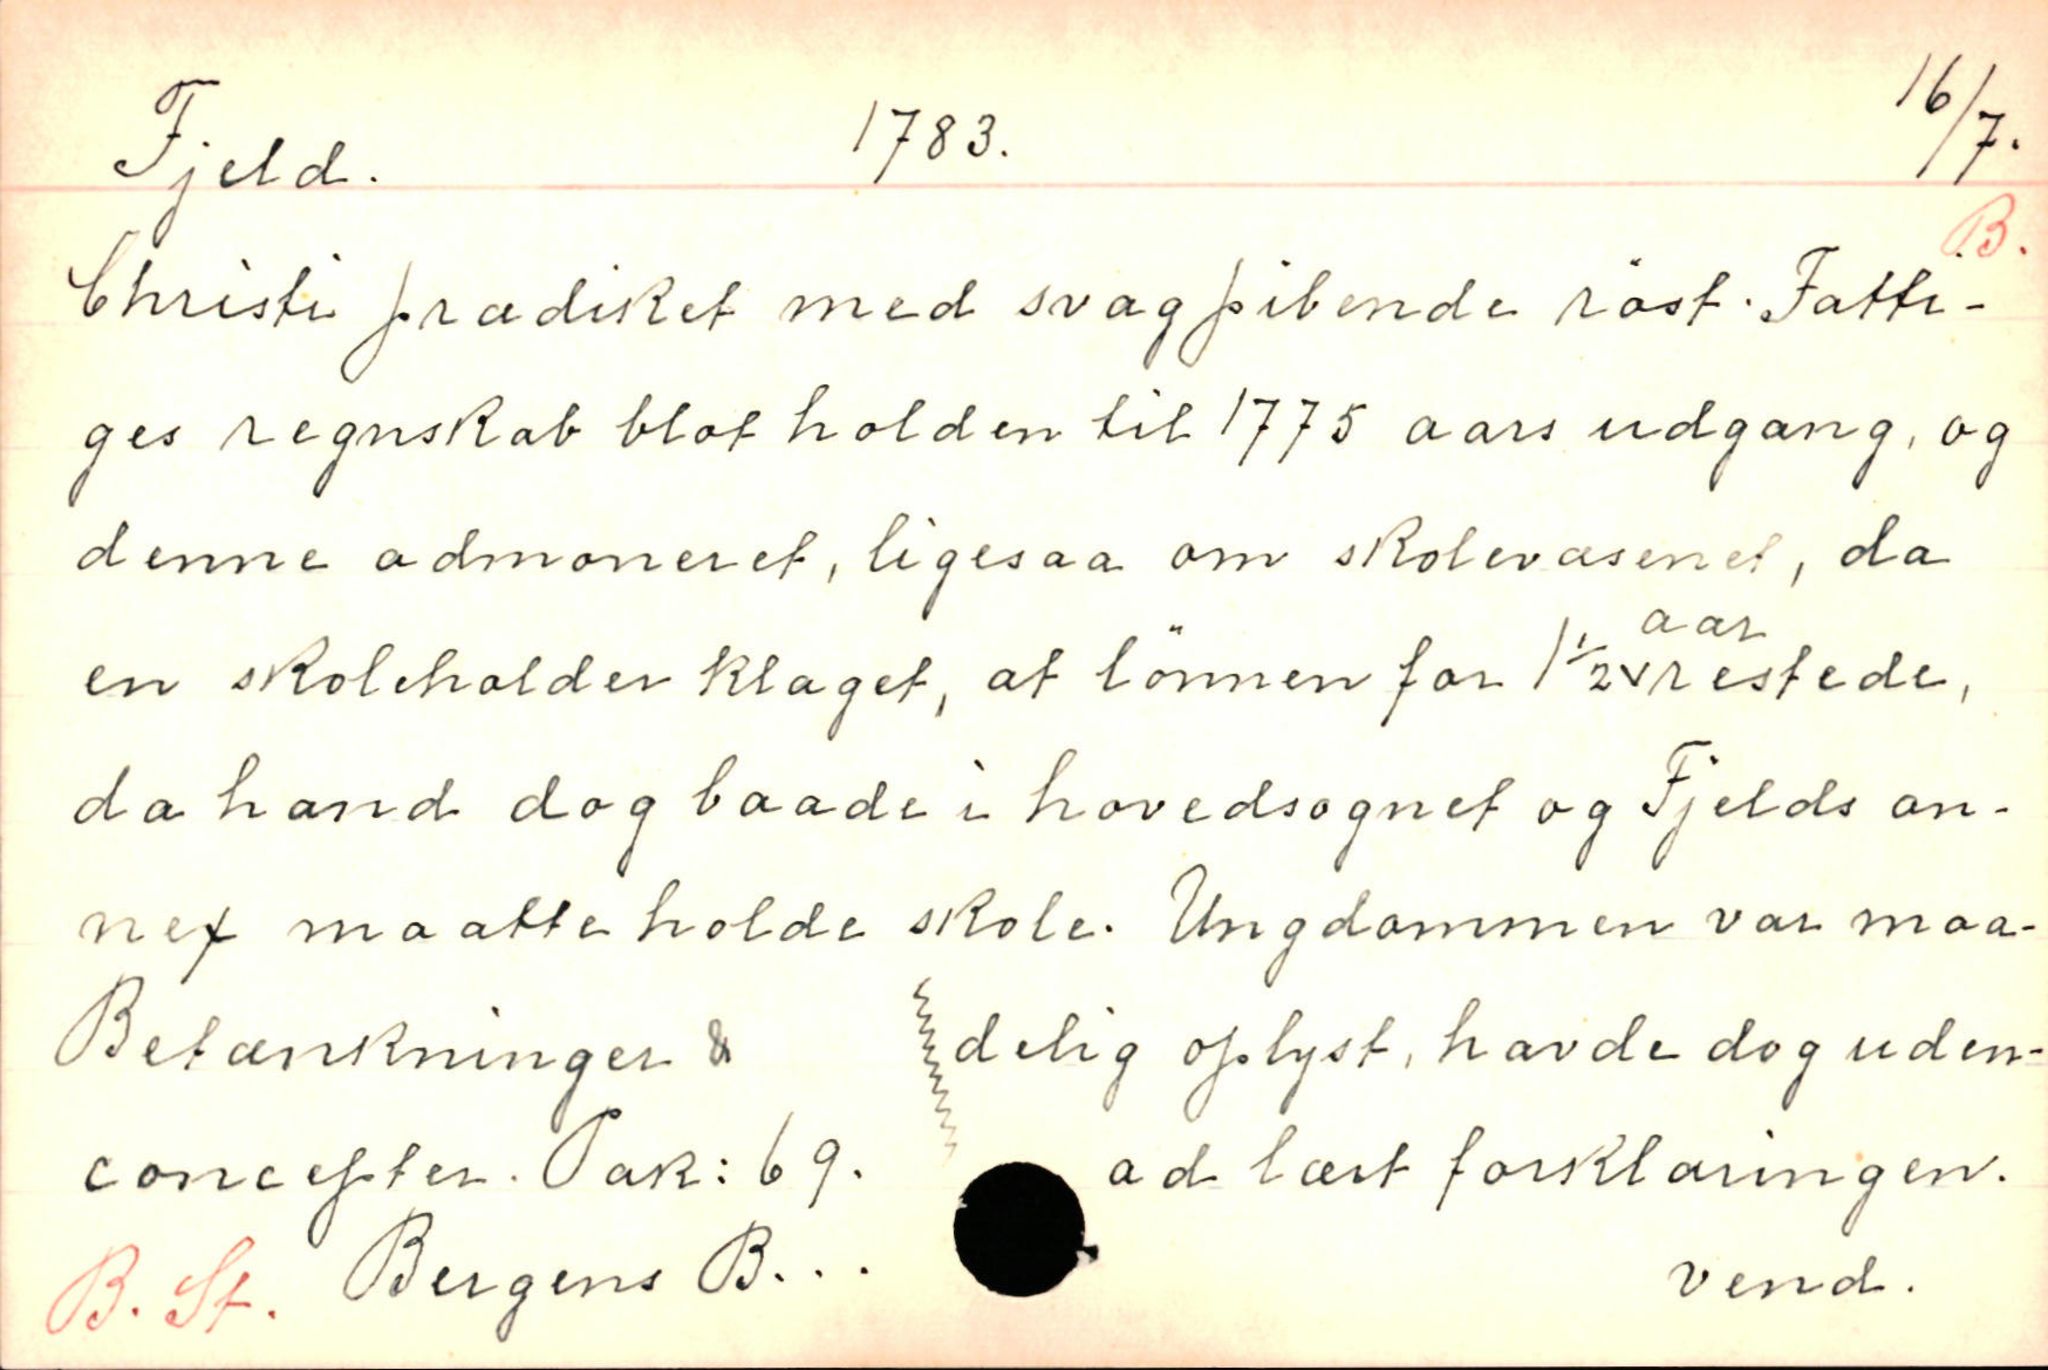 Fjeld. 1783. 16/7.
B.
Christi prædiket med svag pibende röst. Fatti-
ges regnskab blot holden til 1775 aars udgang, og
denne admoneret, ligesaa om skolevæsenet, da
en skoleholder klaget, at lönnen for 1 1/2 aar restede,
da hand dog baade i hovedsognet og Fjelds an-
nex maatte holde skole. Ungdommen var maa-
delig oplyst, havde dog uden-
ad lært forklaringen.
vend.
Betænkninger &
concepter. Pak: 69.
B. St. Bergens B...